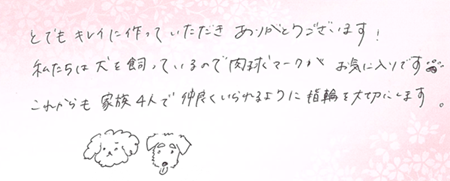 とてもキレイに作っていただきありがとうございます!
私たちは犬を飼っているので肉球マークがお気に入りです
これからも家族4人で仲良くいられるように指輪を大切にします。